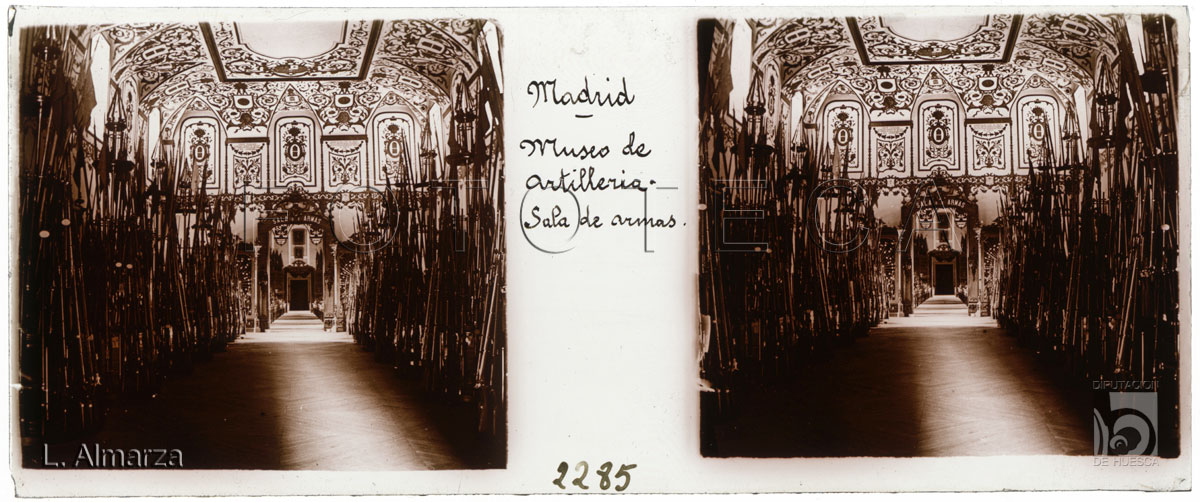 Madrid
Museo de
Artilleria.
Sala de armas.
2285
FOTOTECA
L. Almarza
DIPUTACION
DE HUESCA